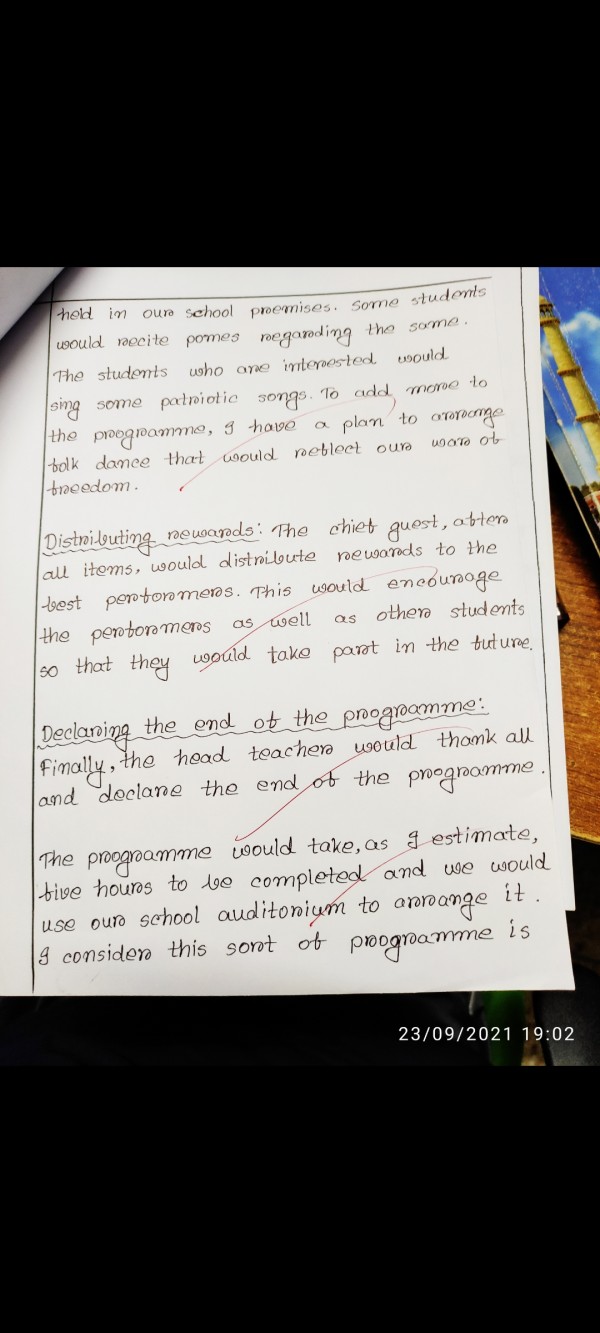 held in our school premises. Some students
would recite pomes regarding the same.
The students who are interested would
sing some patriotic songs. To add more to
the programme, I have a plan to arrange
folk dance that would reflect our war of
freedom.
Distributing rewards: The chief guest, after
all items, would distribute rewards to the
best performers. This would encourage
the performers as well as other students
so that they would take part in the future.
Declaring the end of the programme:
Finally, the head teacher would thank all
and declare the end of the programme.
The programme would take, as I estimate,
five hours to be completed and we would
use our school auditorium to arrange it.
I consider this sort of programme is
23/09/2021 19:02